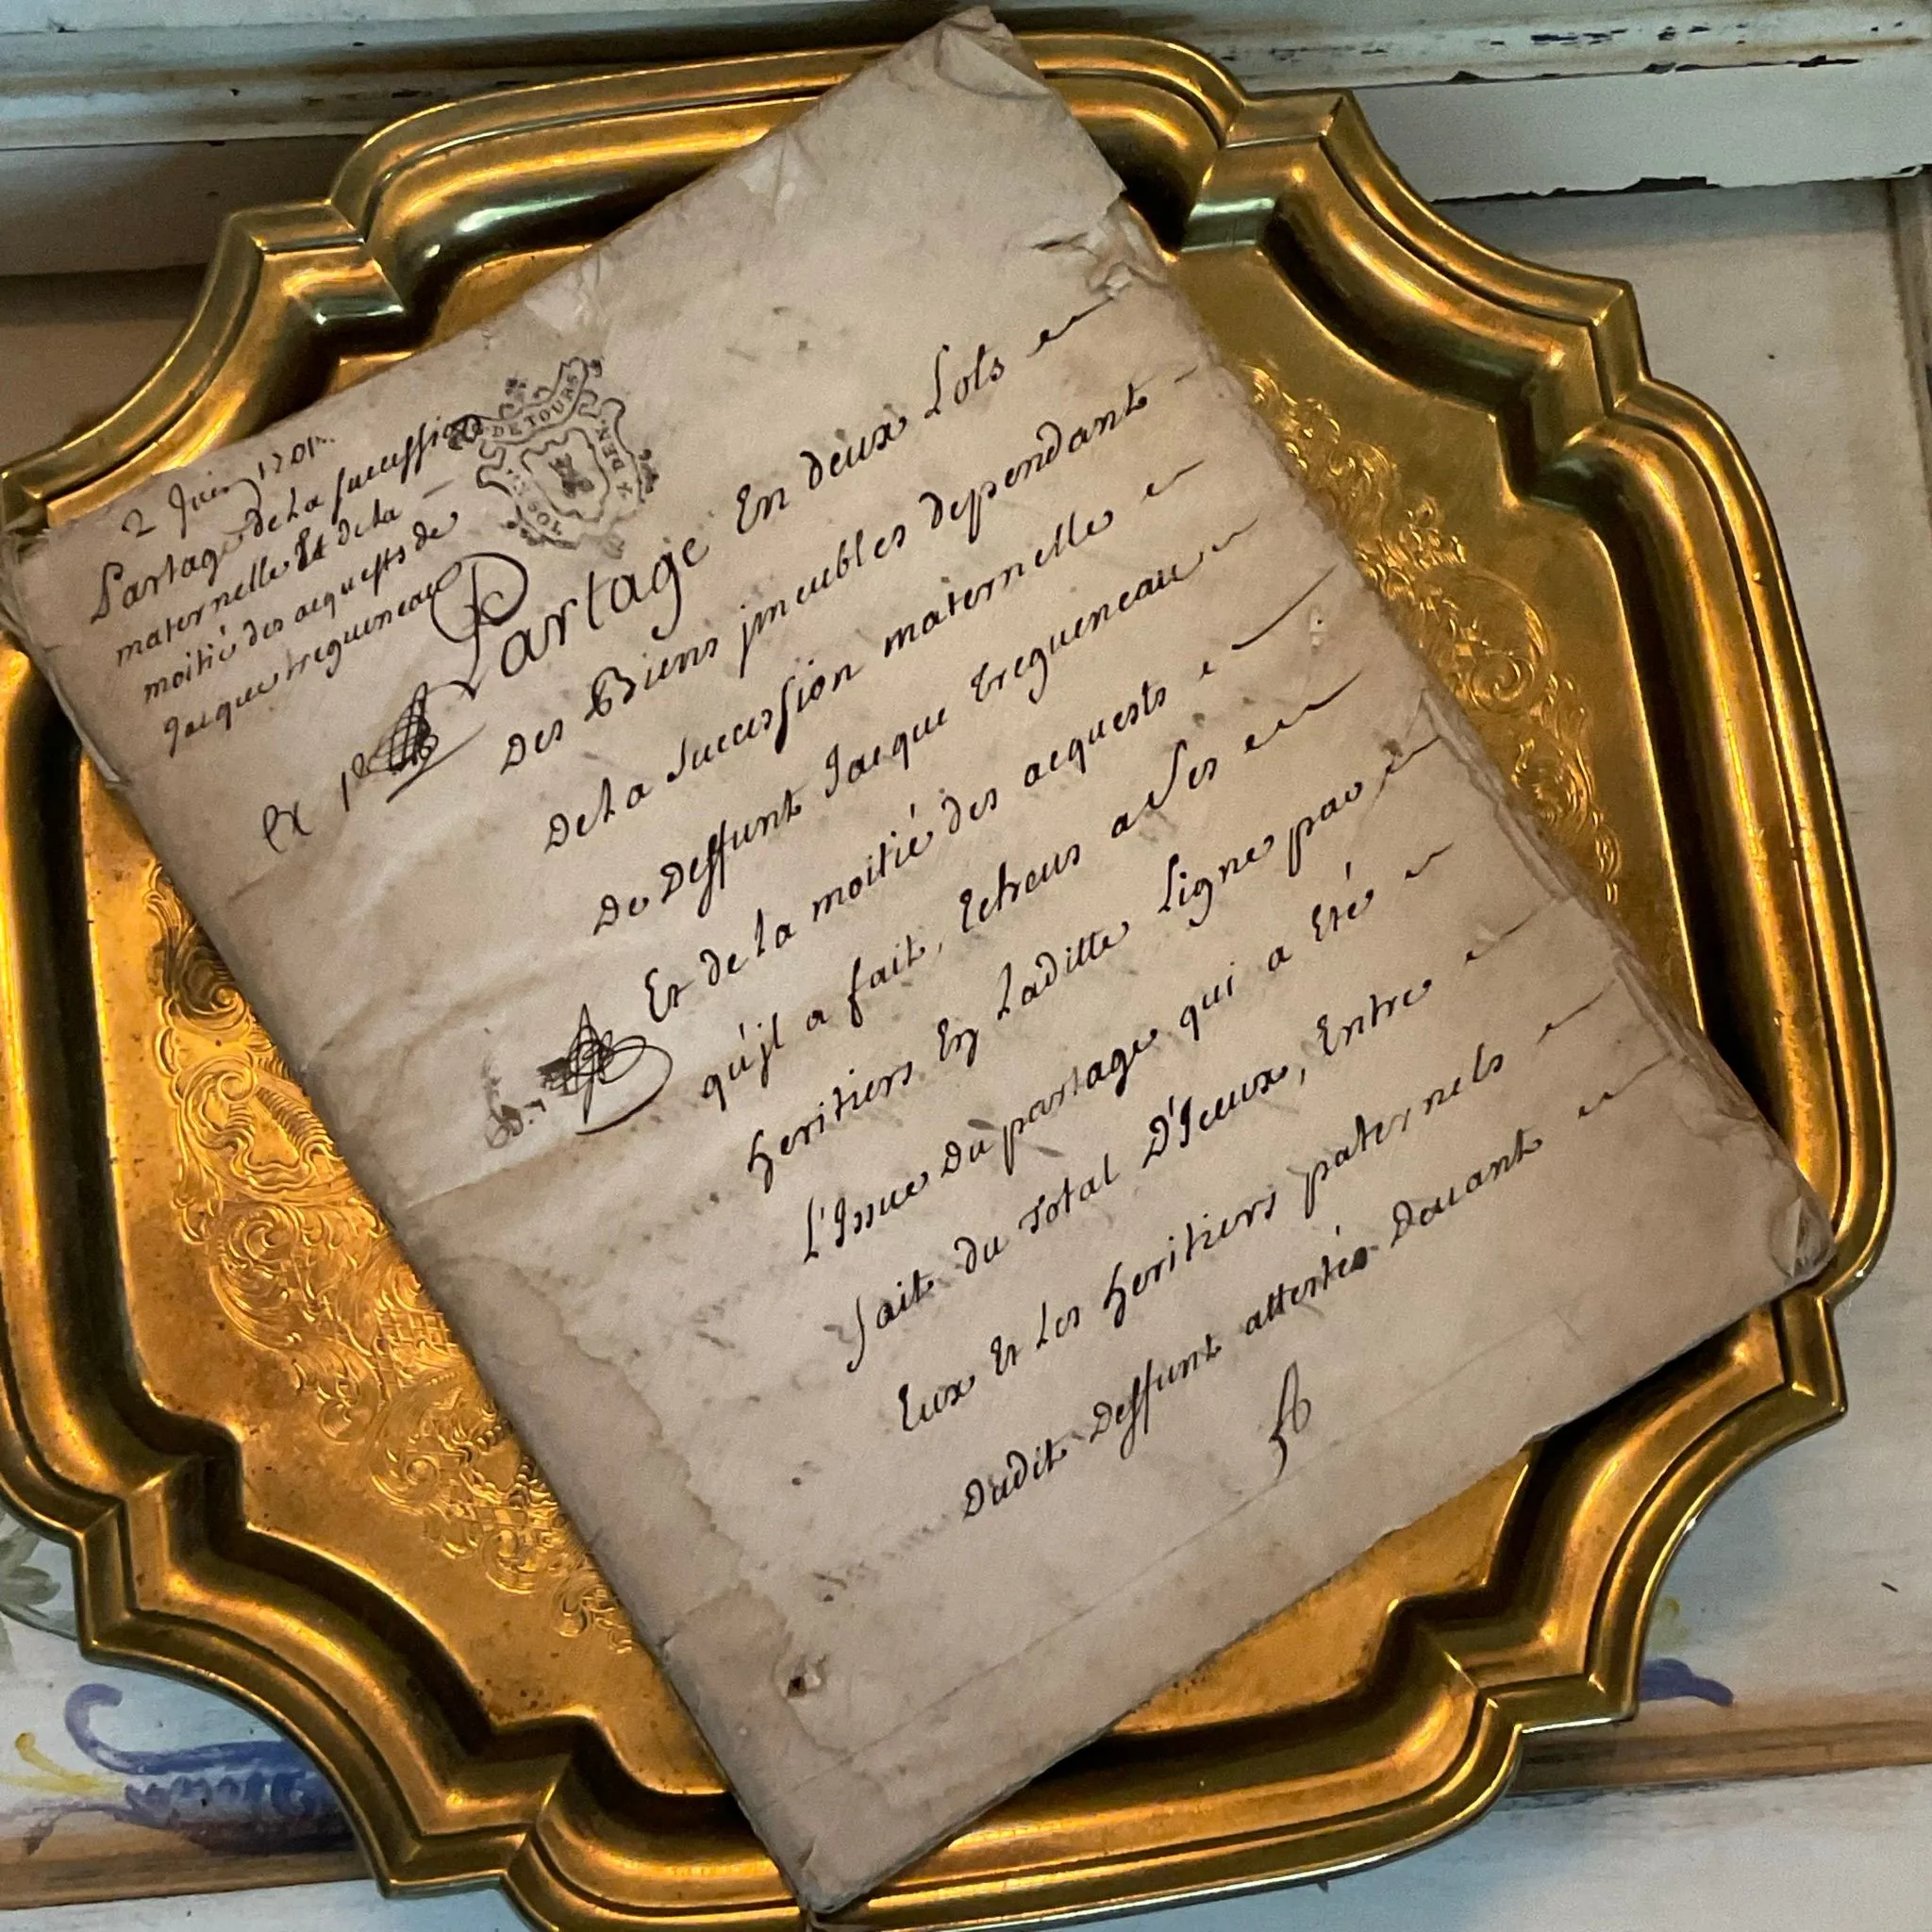 2 Juin 1701
Partage de La succession
maternelle Et de la
moitié des acquests de
Jacque tregueneau
DE TOURS
Partage En deux Lots
Des Biens jmeubles dependant
De La Succession maternelle
De Deffunt Jacque tregueneau
Et de la moitié des acquests
qu'jl a fait, Echeus a Ses
heritiers En Laditte Ligne par
L'Issue Du partage qui a Eté
fait du Total D'Iceux, Entre
Eux Et Les heritiers paternels
Dudit Deffunt attestés Deuant